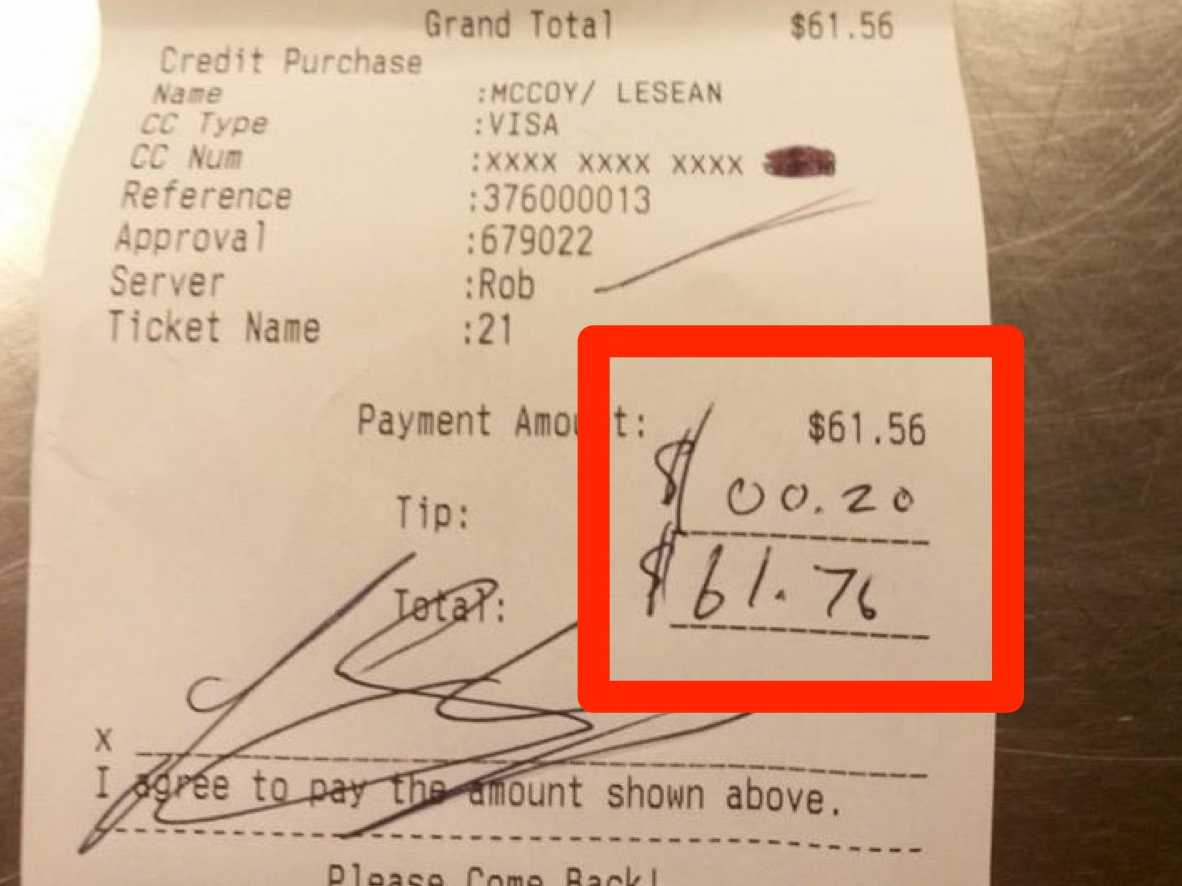 Grand Total $61.56
Credit Purchase
Name :MCCOY/ LESEAN
CC Type :VISA
CC Num :XXXX XXXX XXXX
Reference :376000013
Approval :679022
Server :Rob
Ticket Name :21
Payment Amou t: $61.56
Tip: $ 00.20
Total: $ 61.76
X
I agree to pay the amount shown above.
Please Come Back!